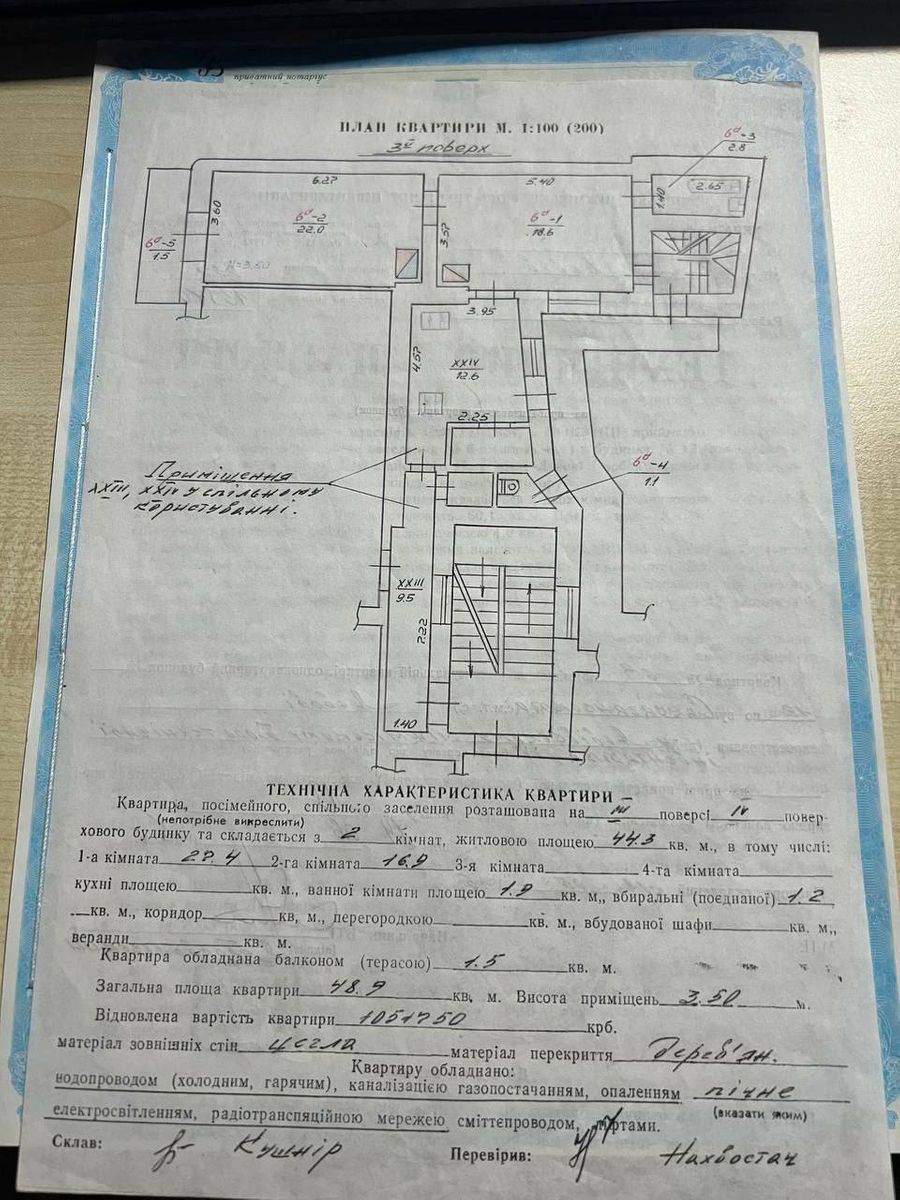 приватний нотаріус
ПЛАН КВАРТИРИ М. 1:100 (200)
3й поверх
6а-3
2.8
6.27
5.40
2.65
1.40
3.60
6а-2
22.0
3.57
6а-1
18.6
6а-5
1.5
H=3.50
3.95
4.57
XXIV
12.6
2.25
6а-4
1.1
Приміщення
XXIII, XXIV у спільному
користуванні.
XXIII
9.5
2.22
1.40
ТЕХНІЧНА ХАРАКТЕРИСТИКА КВАРТИРИ
Квартира, посімейного, спільного заселення розташована на III поверсі IV повер-
(непотрібне викреслити)
хового будинку та складається з 2 кімнат, житловою площею 44.3 кв. м., в тому числі:
1-а кімната 27.4 2-га кімната 16.9 3-я кімната 4-та кімната
кухні площею кв. м., ванної кімнати площею 1.9 кв. м., вбиральні (поєднаної) 1.2
кв. м., коридор кв, м., перегородкою кв. м., вбудованої шафи кв. м.,
веранди кв. м.
Квартира обладнана балконом (терасою) 1.5 кв. м.
Загальна площа квартири 48.9 кв. м. Висота приміщень 3.50 м.
Відновлена вартість квартири 1051750 крб.
матеріал зовнішніх стін цегла матеріал перекриття дерев'ян.
Квартиру обладнано:
водопроводом (холодним, гарячим), каналізацією газопостачанням, опаленням пічне
(вказати яким)
електросвітленням, радіотранспяційною мережею сміттєпроводом, ліфтами.
Склав: Кушнір Перевірив: Нахвостач